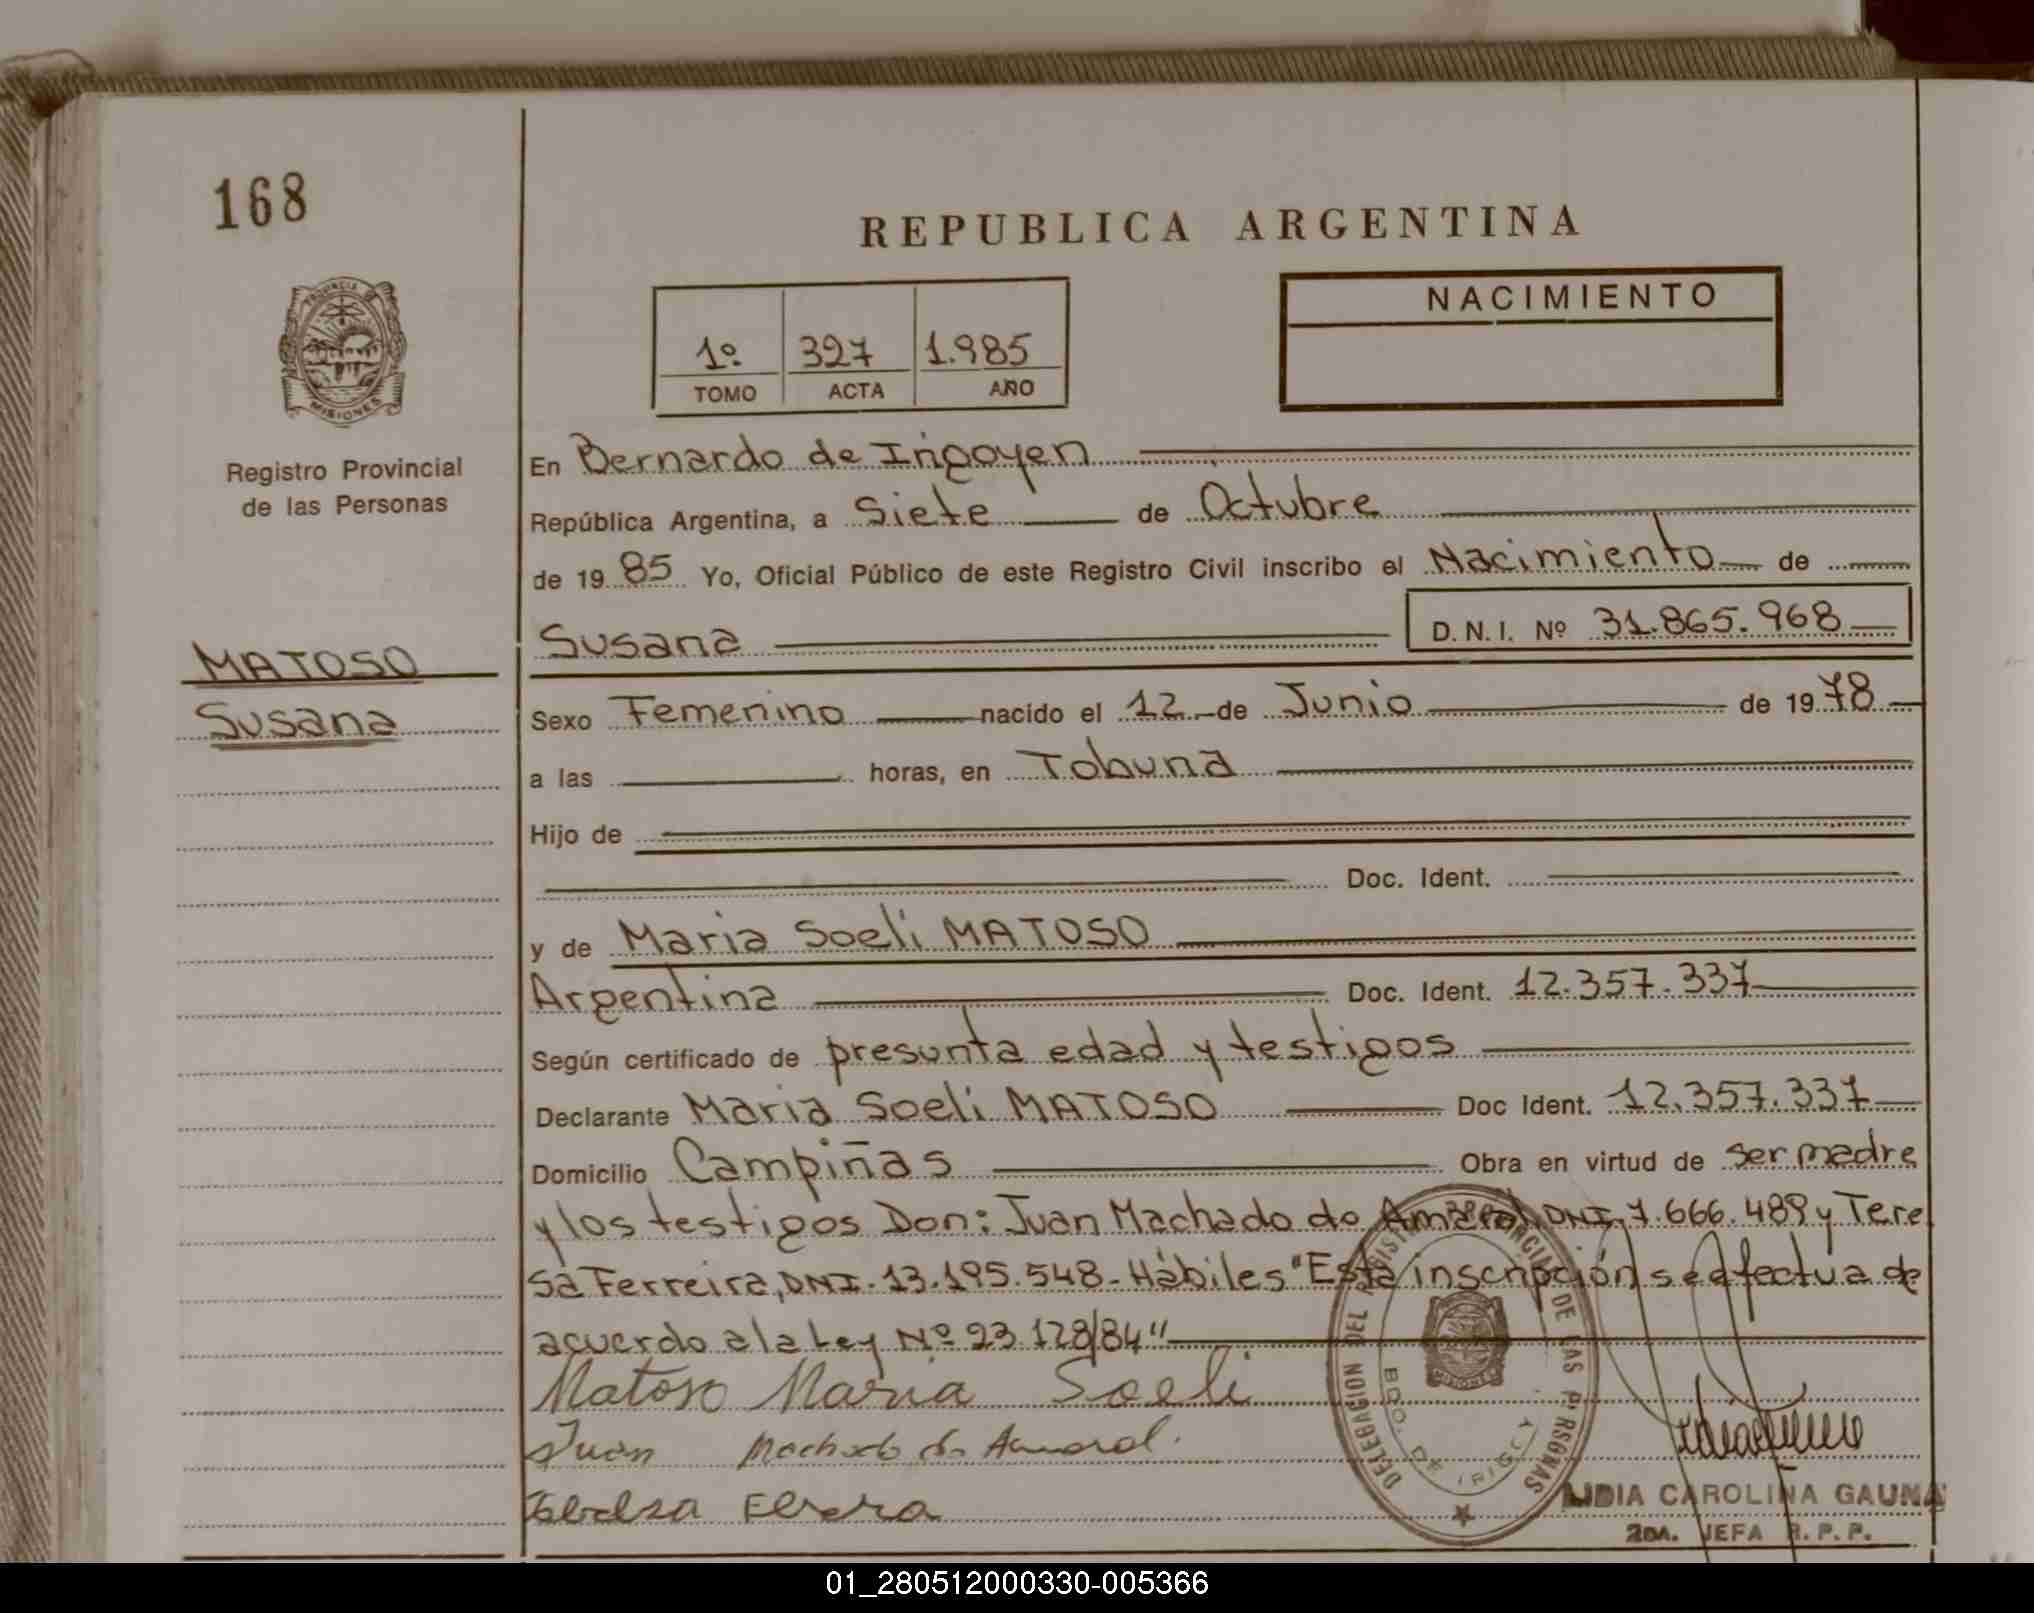 168
REPUBLICA ARGENTINA
PROVINCIA DE
MISIONES
Registro Provincial
de las Personas
1º 327 1.985
TOMO ACTA AÑO
NACIMIENTO
En Bernardo de Irigoyen
República Argentina, a Siete de Octubre
de 19 85 Yo, Oficial Público de este Registro Civil inscribo el Nacimiento de
Susana D.N.I. Nº 31.865.968
MATOSO
Susana
Sexo Femenino nacido el 12 de Junio de 19 78
a las horas, en Tobuna
Hijo de
Doc. Ident.
y de Maria Soeli MATOSO
Argentina Doc. Ident. 12.357.337
Según certificado de presunta edad y testigos
Declarante Maria Soeli MATOSO Doc Ident. 12.357.337
Domicilio Campiñas Obra en virtud de ser madre
y los testigos Don: Juan Machado do Amaral, DNI. 7.666.489 y Tere
sa Ferreira, DNI. 13.195.548. Hábiles "Esta inscripción se afectua de
acuerdo a la Ley Nº 23.128/84"
Matoso Maria Soeli
Juan Machado do Amaral.
DELEGACION DEL REGISTRO PROVINCIAL DE LAS PERSONAS
BDO. DE IRIGOY
MISIONES
LIDIA CAROLINA GAUNA
2DA. JEFA R.P.P.
01_280512000330-005366